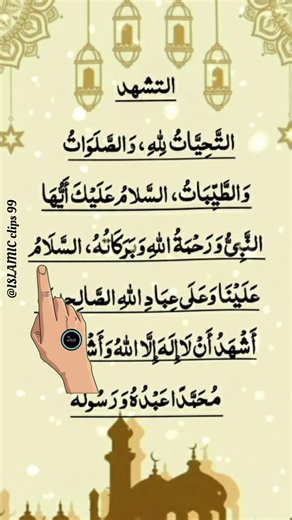 التشهد
التَّحِيَّاتُ لِلهِ، وَالصَّلَوَاتُ
وَالطَّيِّبَاتُ، السَّلَامُ عَلَيْكَ أَيُّهَا
النَّبِيُّ وَرَحْمَةُ اللهِ وَبَرَكَاتُهُ، السَّلَامُ
عَلَيْنَا وَعَلَى عِبَادِ اللهِ
أَشْهَدُ أَنْ لَا إِلَهَ إِلَّا اللهُ
مُحَمَّدًا عَبْدُهُ وَرَسُولُهُ
@ISLAMIC clips 99